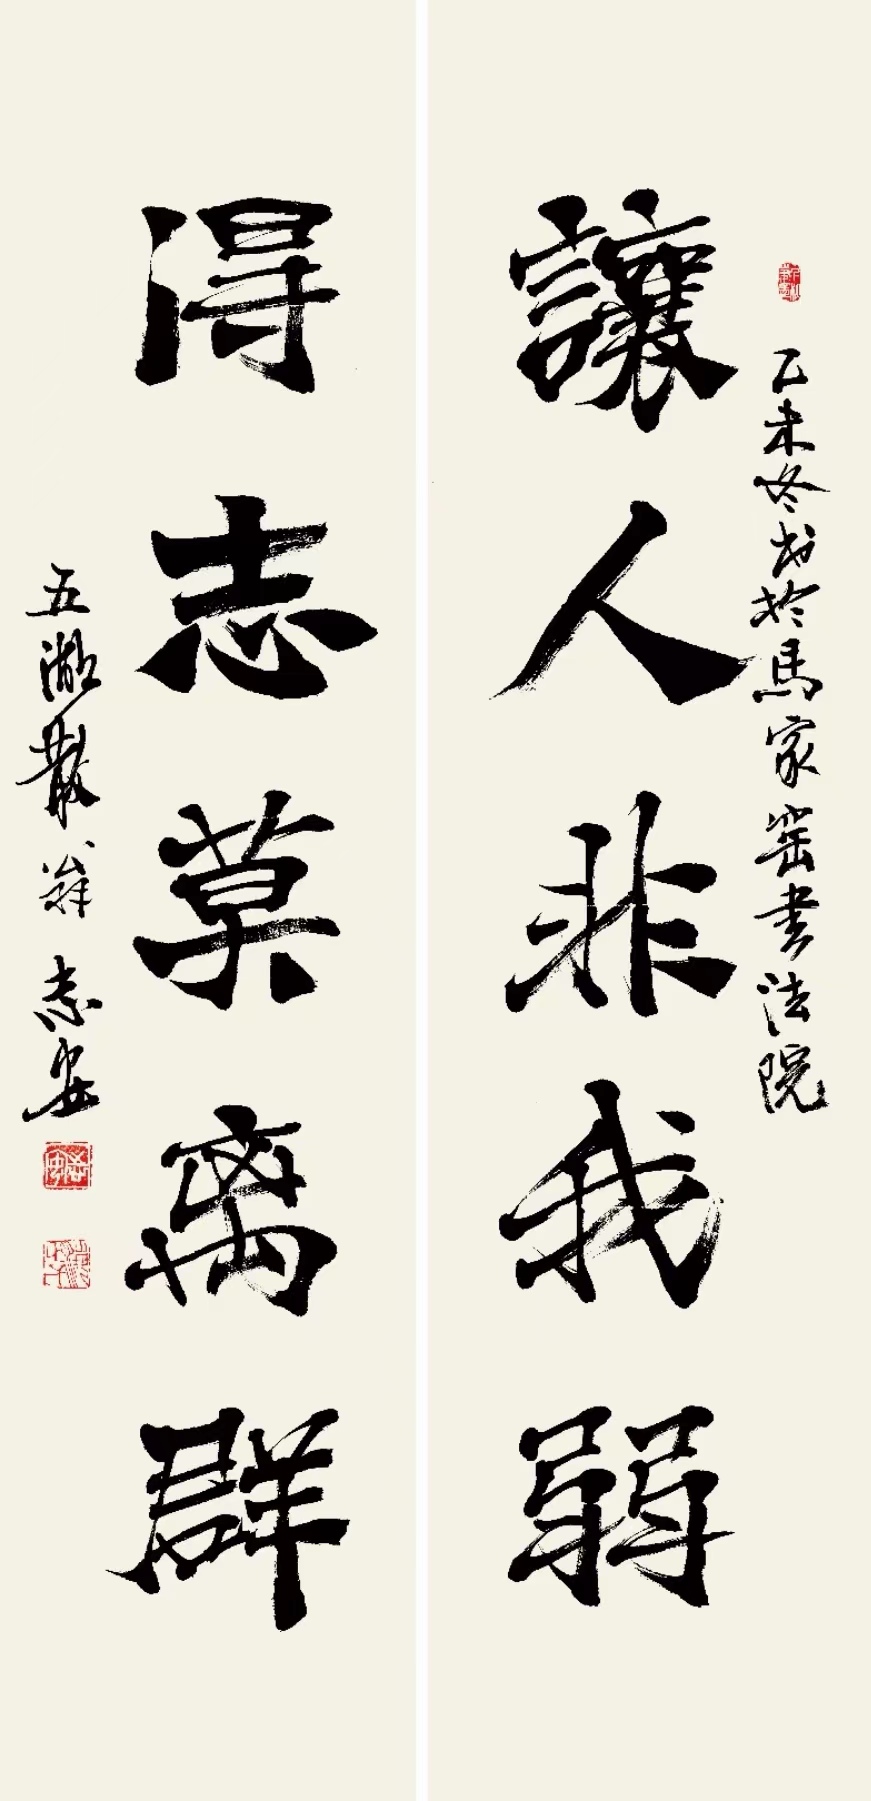 乙未冬书於馬家窑書法院
讓人非我弱
得志莫离群
五湖散翁志安